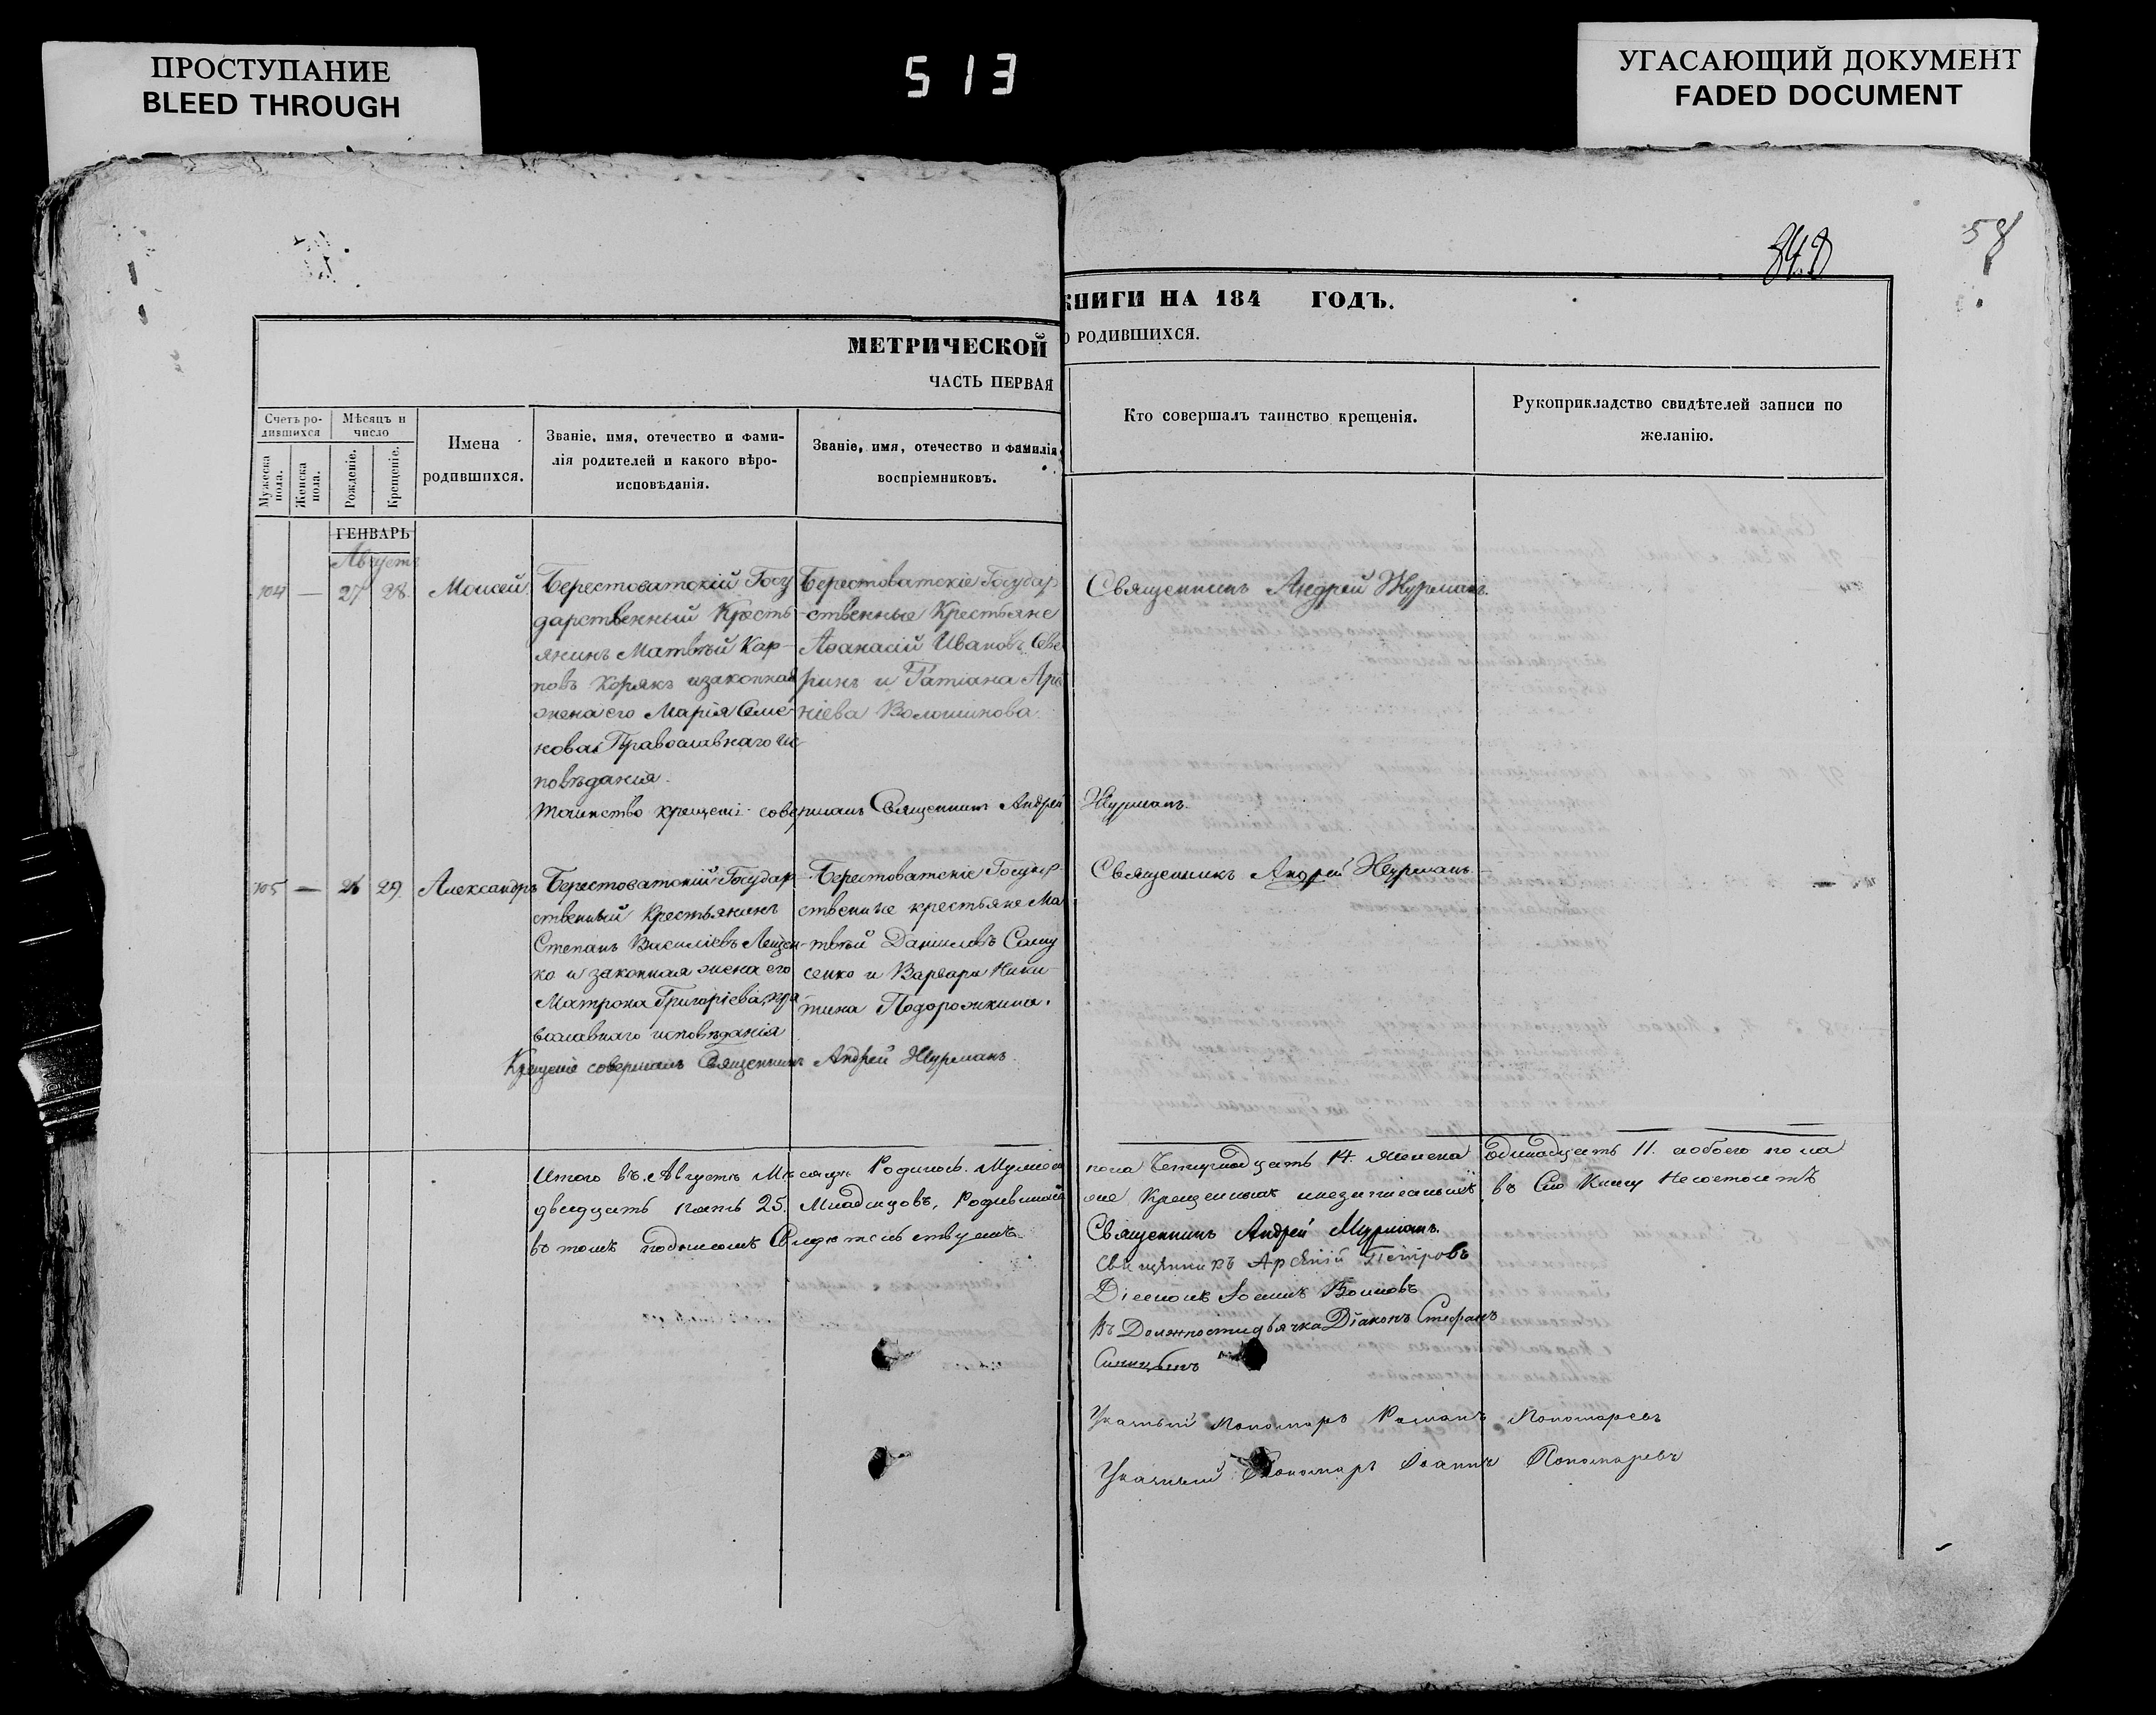 ПРОСТУПАНИЕ
BLEED THROUGH
513
УГАСАЮЩИЙ ДОКУМЕНТ
FADED DOCUMENT
58
МЕТРИЧЕСКОЙ
КНИГИ НА 184 ГОДЪ.
ЧАСТЬ ПЕРВАЯ
О РОДИВШИХСЯ.
Счетъ ро-
дившихся
Мужеска пола.
Женска пола.
Мѣсяцъ и
число
Рожденіе.
Крещеніе.
Имена
родившихся.
Званіе, имя, отечество и фами-
лія родителей и какого вѣро-
исповѣданія.
Званіе, имя, отечество и фамилія
воспріемниковъ.
Кто совершалъ таинство крещенія.
Рукоприкладство свидѣтелей записи по
желанію.
ГЕНВАРЬ
Августъ
104 — 27 28. Моисей
Берестоватскій Госу
дарственный Кресть
янинъ Матвѣй Кар-
повъ Корякъ и законная
жена его Марія Семе-
нова Православнаго Ис-
повѣданія.
Берестоватскіе Государ
-ственные Крестьяне
Аѳанасій Ивановъ Севе
ринъ и Татіана Арсе
ніева Волошинова
Священникъ Андрей Журманъ.
Таинство крещенія совершалъ Священникъ Андрей Журманъ.
105 — 26 29. Александръ
Берестоватскій Государ-
ственный Крестьянинъ
Степанъ Василіевъ Лещен-
ко и законная жена его
Матрона Григоріева, пра
вославнаго исповѣданія
Берестоватскіе Государ
ственные крестьяне Ма
твѣй Даниловъ Сашу
сенко и Варвара Ники-
тина Подорожкина.
Священникъ Андрей Журманъ.
Крещеніе совершалъ Священникъ Андрей Журманъ
Итого въ Августѣ Мѣсяцѣ Родилось. Мужеска пола Четырнадцать 14. Женска Одинадцать 11. а обоего пола
двадцать пять 25. Младенцовъ, Родившихся не Крещенныхъ и незаписаныхъ въ Сію Книгу Несостоитъ
въ томъ подписомъ Свидѣтельствуемъ.
Священникъ Андрей Журманъ.
Священникъ Арсеній Петровъ
Діаконъ Іоаннъ
Въ Должности дьячка Діаконъ Стефанъ
Синицынъ
Указный Пономарь Романъ Пономаревъ
Указный Пономарь Іоаннъ Пономаревъ